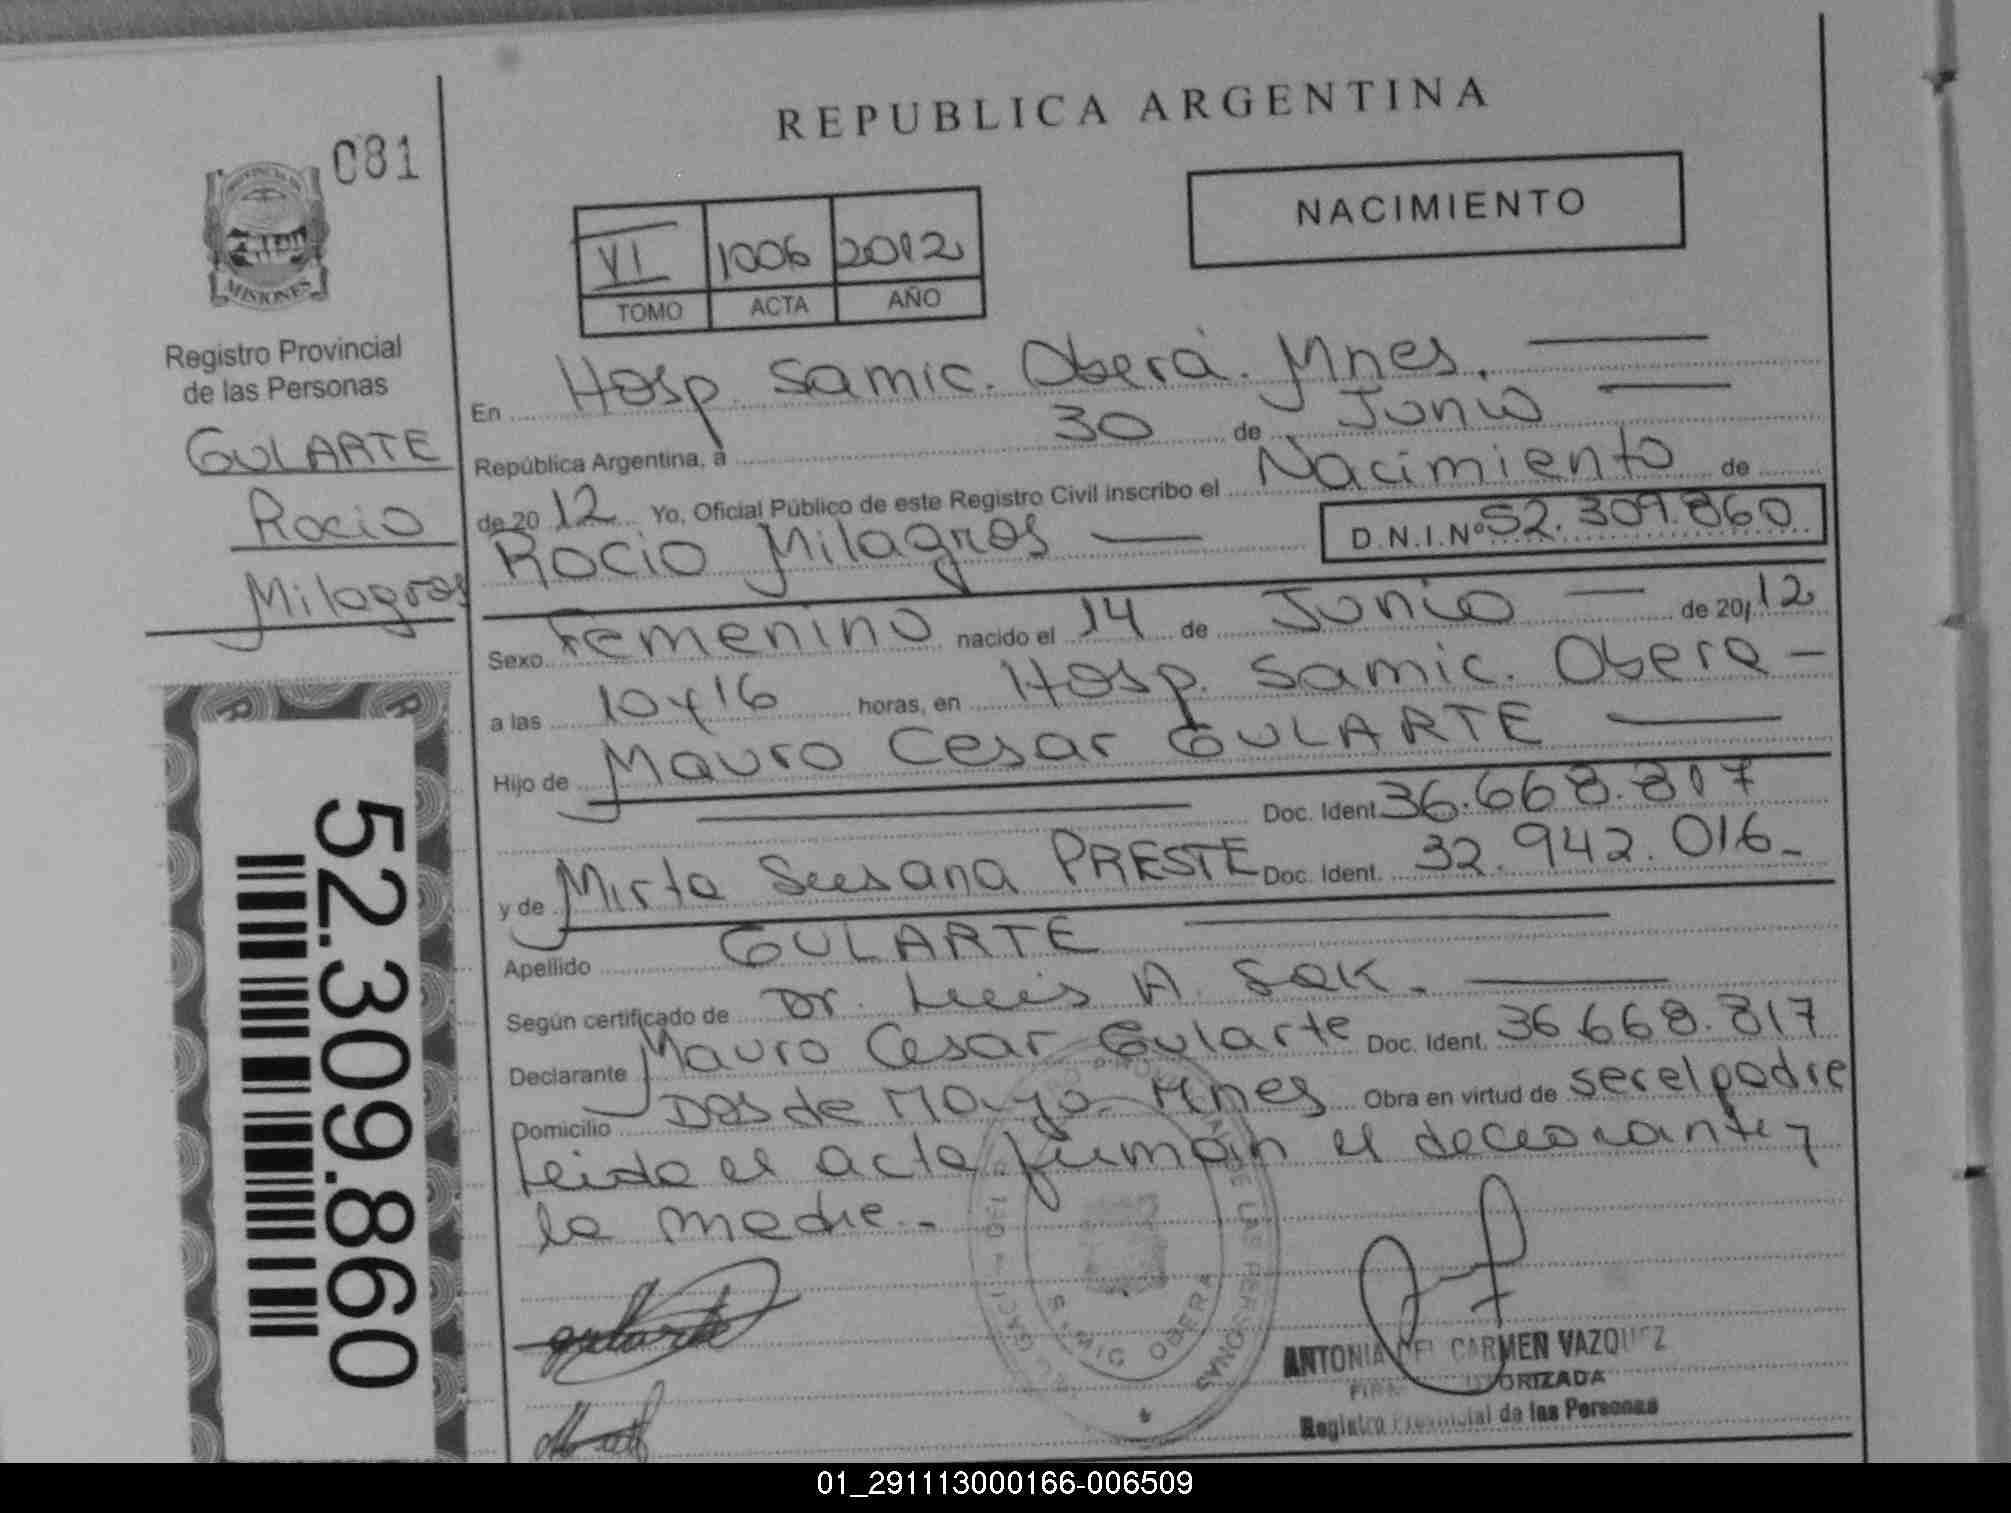 REPUBLICA ARGENTINA
081
NACIMIENTO
VI 1006 2012
TOMO ACTA AÑO
MISIONES
Registro Provincial
de las Personas
GULARTE
Rocio
Milagros
52.309.860
En Hosp. Samic. Oberá. Mnes.
República Argentina, a 30 de Junio
de 2012 Yo, Oficial Público de este Registro Civil inscribo el Nacimiento de
Rocio Milagros D.N.I.Nº 52.309.860
Sexo Femenino nacido el 14 de Junio de 20 12
a las 10 y 16 horas, en Hosp. Samic. Obera
Hijo de Mauro Cesar GULARTE
Doc. Ident. 36.668.817
y de Mirta Susana PRESTE Doc. Ident. 32.942.016
Apellido GULARTE
Según certificado de Dr. Luis A. Sek.
Declarante Mauro Cesar Gularte Doc. Ident. 36.668.817
Domicilio Dos de Mayo Mnes Obra en virtud de ser el padre
Leida el acta firman el declarante y
la madre.
SAMIC OBERA
DE LAS PERSONAS
ANTONIA DEL CARMEN VAZQUEZ
Registro Provincial de las Personas
01_291113000166-006509